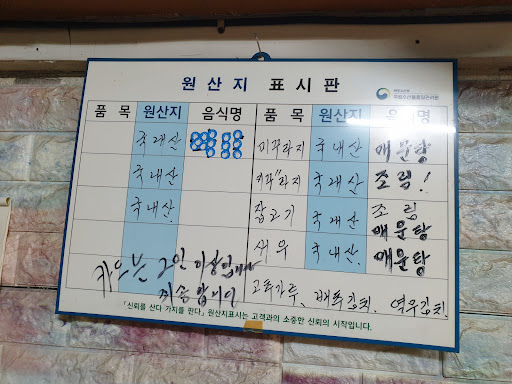 원산지 표시판
국립수산물품질관리원
품 목 원산지 음식명 품 목 원산지 음식명
국내산 미꾸라지 국내산 매운탕
국내산 국내산 조림!
국내산 잡고기 국내산 조림 매운탕
새우 국내산. 매운탕
2인 이상입니다
죄송합니다
고추가루, 배추김치,
「신뢰를 산다 가치를 판다」 원산지표시는 고객과의 소중한 신뢰의 시작입니다.